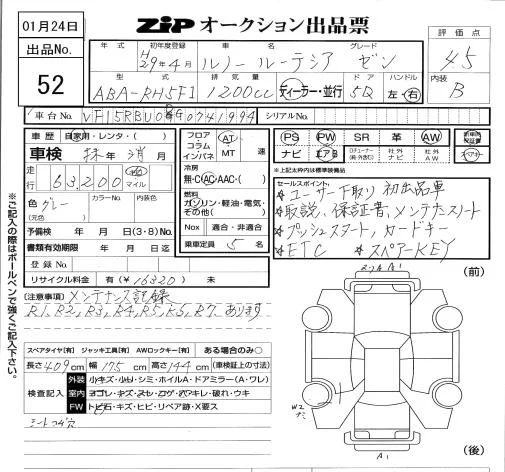 01月24日
ZIP オークション出品票
評価点
4.5
内装
B
出品No.
52
年式 初年度登録 車名 グレード
H29年4月 ルノー ルーテシア ゼン
型式 排気量 ドア ハンドル
ABA-RH5F1 1200cc ディーラー・並行 5D 左・右
車台No. VF15RBU0 G0741994 シリアルNo.
車歴 自家用・レンタ・( )
車検 抹年消月
走行 63,200 km マイル
色 グレー カラーNo. 内装色
(元色)
予備検 年 月 日(3・8)No.
書類有効期限 年 月 日迄
登録No.
リサイクル料金 有(¥16320) 未
フロア
コラム
インパネ
AT
MT 速
冷房
無・C・AC・AAC・( )
燃料
ガソリン・軽油・電気・
その他( )
Nox 適合・非適合
乗車定員 5 名
PS PW SR 革 AW
ナビ エアB TVチューナー 社外ナビ 社外AW
スペアキー
※上記太枠内は標準装備品
セールスポイント
★ユーザー下取り 初出品車
★取説、保証書、メンテナンスノート
★プッシュスタート、カードキー
★ETC ★スペアーKEY
(注意事項) メンテナンス記録
R1、R2、R3、R4、R5、R6、R7、あります
スペアタイヤ[有] ジャッキ工具[有] AWロックキー[有] ある場合のみ○
長さ409cm 幅175cm 高さ144cm (車検証上の寸法)
検査記入
外装 小キズ・小凹・シミ・ホイルA・ドアミラー(A・ワレ)
室内 ヨゴレ・キズ・スセ・コゲ・ペアキレ・破れ・ウキ
FW トビ石・キズ・ヒビ・リペア跡・X要ス
シートコゲ穴
(前)
(後)
A1
W2
A1
※ご記入の際はボールペンで強くご記入下さい。